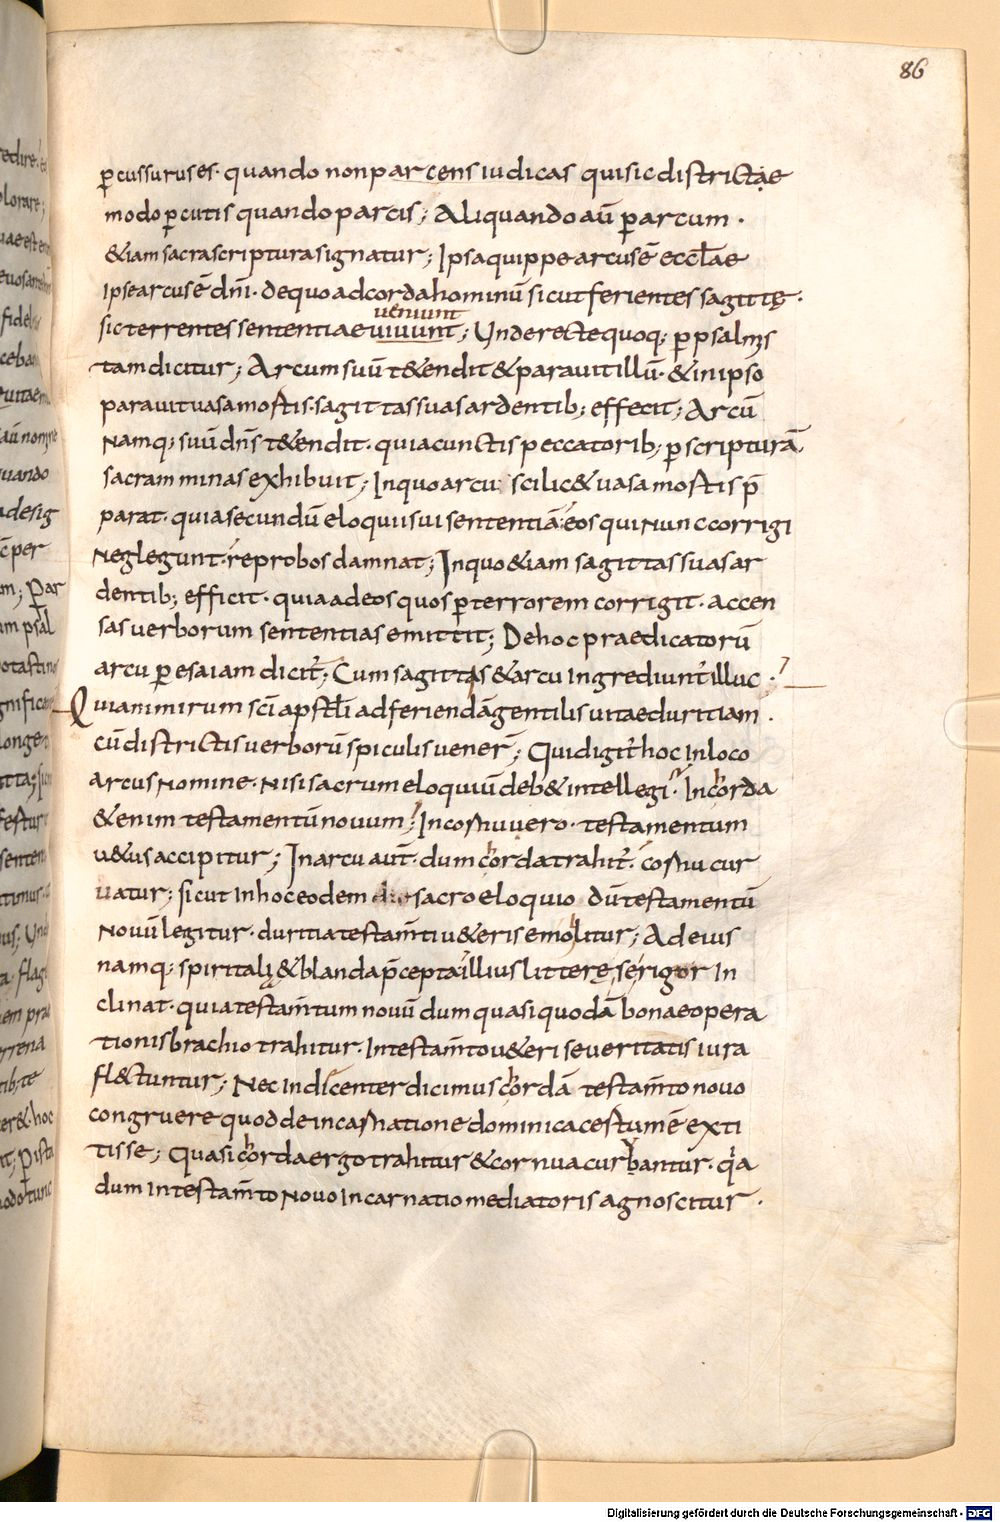 86
p̲cussurus es· quando non parcens iudicas qui sic districtae
modo p̲cutis quando parcis; Aliquando aū p̲ arcum ·
&iam sacra scriptura signatur; Ipsa quippe arcus ē eccl̄ae
ipse arcus ē dn̄i· de quo ad corda hominū sicut ferientes sagittę·
ueniunt
sic terrentes sententiae uiuunt; Unde recte quoq; p̲ psalmis
tam dicitur; Arcum suū t&endit & parauit illū· & in ipso
parauit uasa mortis· sagittas suas ardentib; effecit; Arcū
Namq; suū dn̄s t&endit· quia cunctis peccatorib; p̲ scripturā
sacram minas exhibuit; In quo arcu scilic& uasa mortis p̄
parat· quia secundū eloquii sui sententiā· eos qui nunc corrigi
Neglegunt· reprobos damnat; In quo &iam sagittas suas ar
dentib; efficit· quia ad eos quos p̲ terrorem corrigit· accen
sas uerborum sententias emittit; De hoc praedicatorū
arcu p̲ esaiam dicit̄; Cum sagittas & arcu ingrediunt̄ illuc·
Quia nimirum sc̄i apstl̄i ad feriendā gentilis uitae duritiam·
cū districtis uerborū spiculis uener̄; Qui digit̄ hoc in loco
arcus Nomine· Nisi sacrum eloquiū deb& intellegi· In corda
h
& enim testamentū nouum; In cornu uero· testamentum
u&us accipitur; In arcu aut̄· dum corda trahit̄· cornu cur
h
uatur; sicut in hoc eodem sacro eloquio dū testamentū
Nouū legitur· duritia testam̄ti u&eris emollitur; Ad eius
namq; spiritali & blanda p̄cepta illius litterę se rigor in
clinat· quia testam̄tum nouū dum quasi quodā bonae opera
tionis brachio trahitur· In testam̄to u&eri seueritatis iura
fl&ctuntur; Nec indicenter dicimus cordā testam̄to nouo
h
congruere quod de incarnatione dominica cestum ē exti
tisse; Quasi corda ergo trahitur & cornua curbantur· qa
h
dum in testam̄to Nouo incarnatio mediatoris agnoscitur·
Digitalisierung gefördert durch die Deutsche Forschungsgemeinschaft - DFG